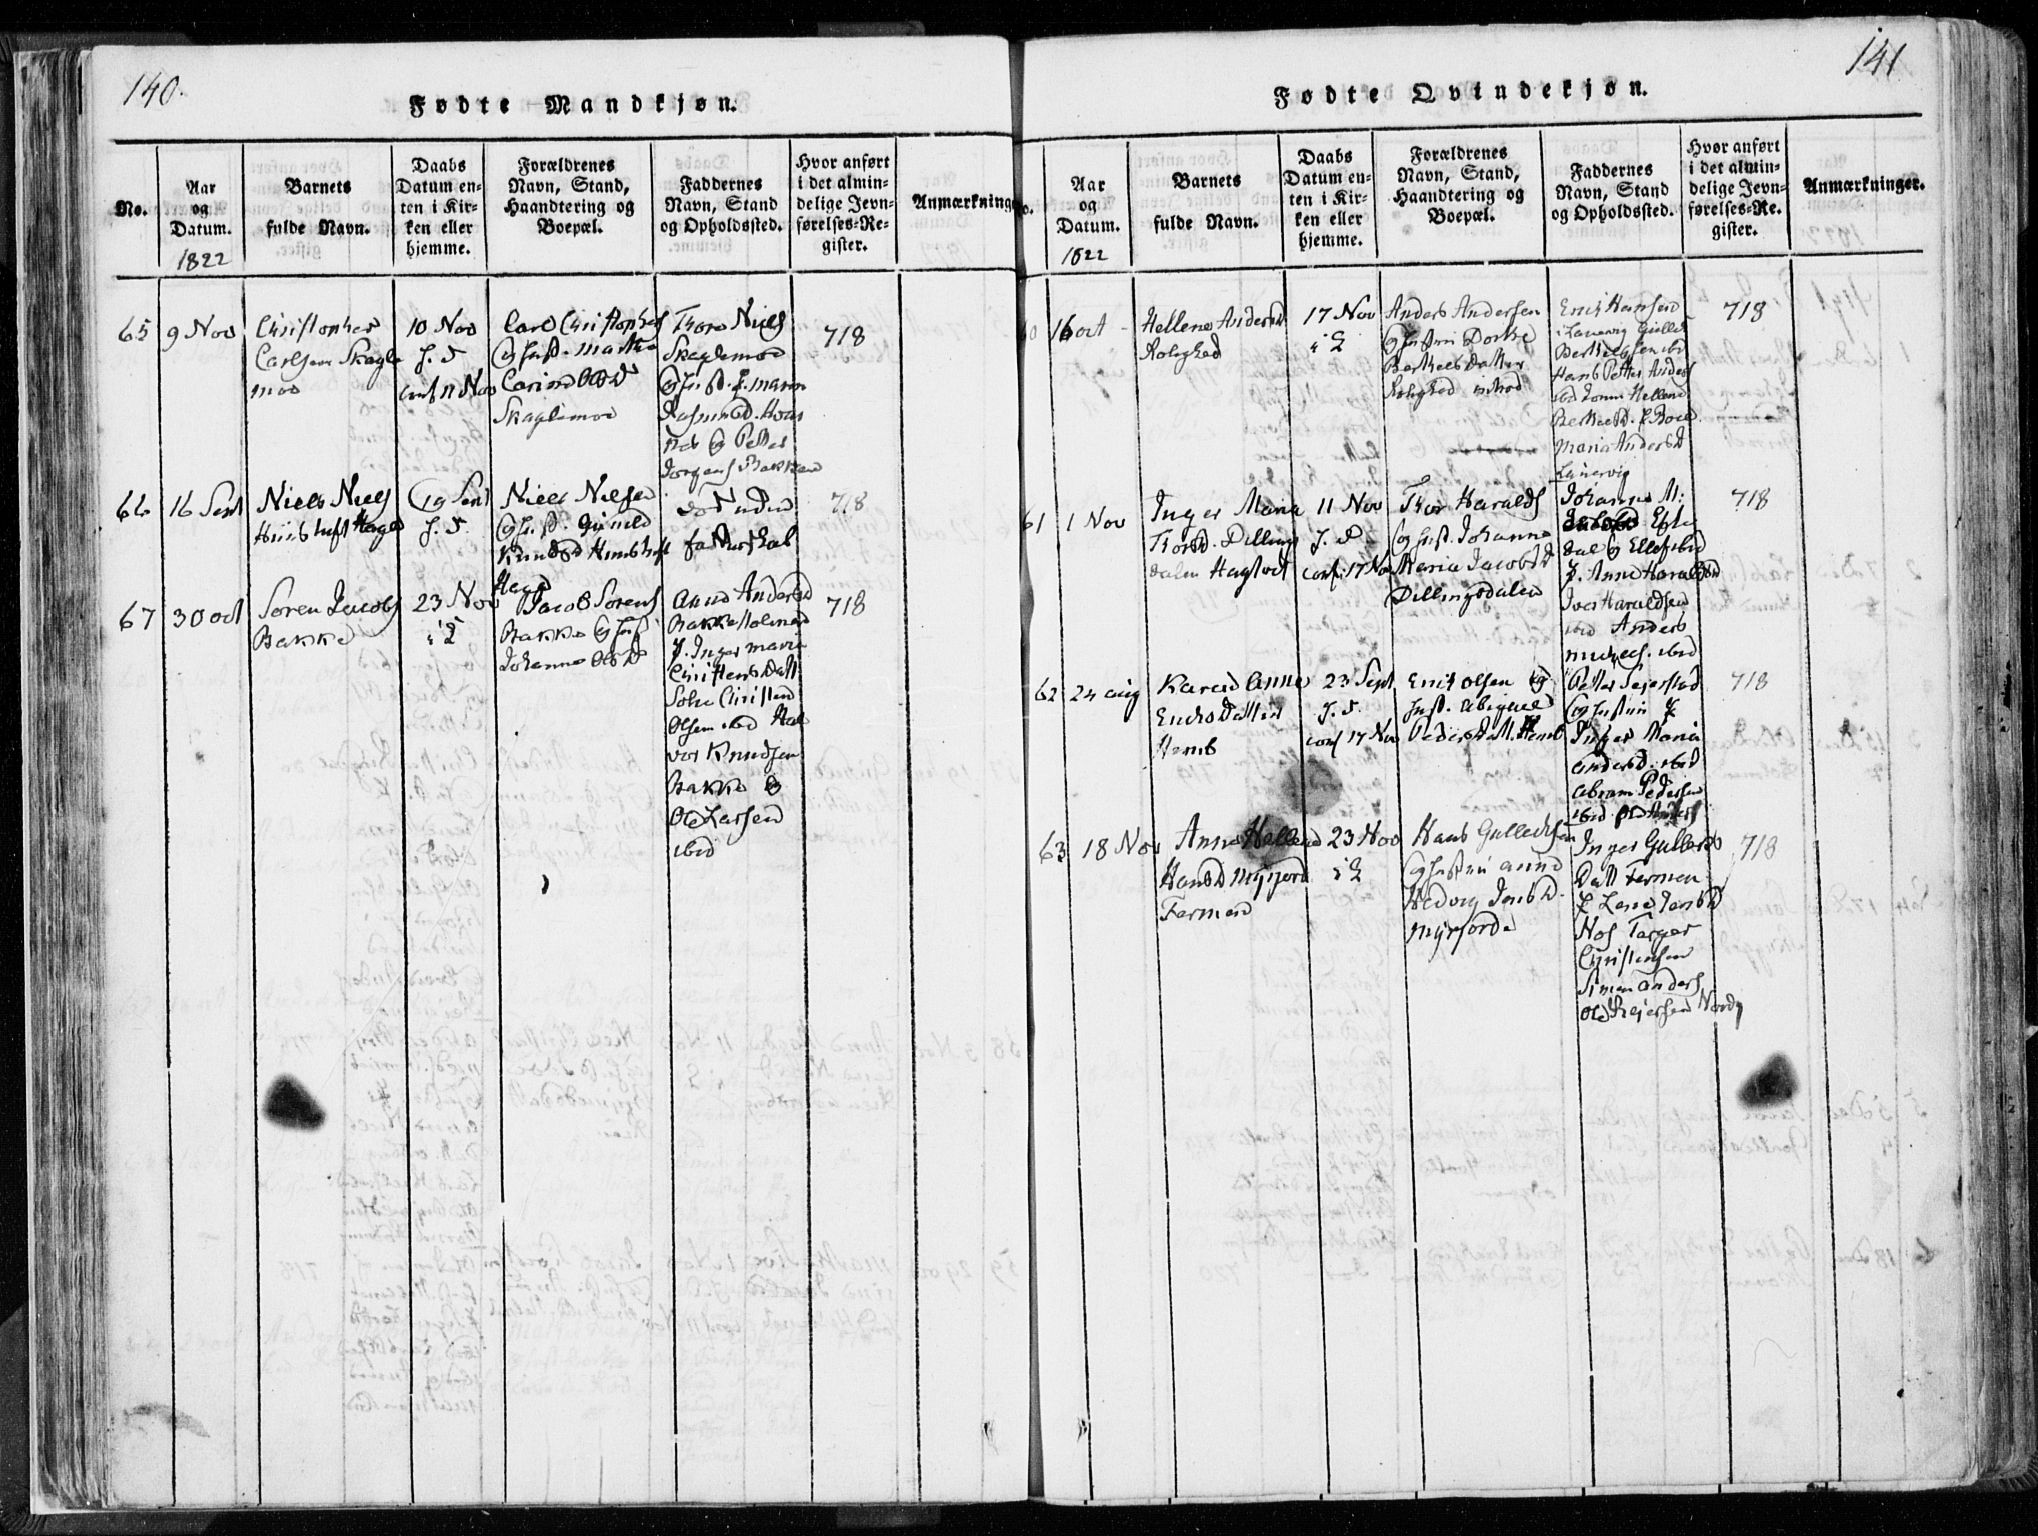 140.
Fødte Mandkjøn.
No.
Aar
og
Datum.
1822
Barnets
fulde Navn.
Daabs
Datum en-
ten i Kir-
ken eller
hjemme.
Forældrenes
Navn, Stand,
Haandtering og
Boepæl.
Faddernes
Navn, Stand
og Opholdssted.
Hvor anført
i det almin-
delige Jevn-
førelses-Re-
gister.
Anmærkninge
65
9 Nov
Christopher
Carlsen Skagle
moe
10 Nov
J. D
conf 17 Nov
Carl Christophers
og hust. Marthe
Carine Ols D
Skaglemoe
Thore Niels
Skaglemoe
og hust.
Rasmus D.
og Petter
Jørgens Bakken
718
66
16 Sept
Niels Niels
Hage
19 Sept
J. D.
Niels Nilsen
og hust. Gunild
Knuds D
Hage
død uden
fadderskab
718
67
30 oct
Søren Jacobs
Bakke
23 Nov
i L
Jacob Sørens
Bakke og hust
Johanne Ols D
Anne Anders D
Bakke Holmen
J. Inger Maria
Christens Datt
Sole Christen
Olsen ibid Hal
vor Knudsen
Bakke og
Ole Larsen
ibid
718
141
Fødte Qvindekjøn.
o.
Aar
og
Datum.
1822
Barnets
fulde Navn.
Daabs
Datum en-
ten i Kir-
ken eller
hjemme.
Forældrenes
Navn, Stand,
Haandtering og
Boepæl.
Faddernes
Navn, Stand
og Opholdssted.
Hvor anført
i det almin-
delige Jevn-
førelses-Re.
gister.
Anmærkninger.
60
16 oct
Hellene Anders D
Rolighed
17 Nov
i L
Anders Andersen
og hustrui Dorthe
Berthels Datter
Rolighed
Erich Hansen
i Laurvig Gulleck
Berthelsen ibid
Hans Petter Anders
ibid Jomfr Hellene
Berthels D.
Maria Anders D
Laurvig
718
61
1 Nov
Inger Maria
Thors D. Dillings
dalen Hagtvet
11 Nov
J. D.
conf. 17 Nov
Thor Haralds
og hust. Johanne
Maria Jacobs D
Dillingsdalen
Johanne M:
Efte
dal og Ellef ibid
J. Anne Haralds D
Iver Haraldsen
ibid Anders
ibid
718
62
24 aug
Karen Anne
Erichs Datter
Hemb
23 Sept
J. D.
conf 17 Nov
Erich Olsen og
hust. Abigael
Peders Datt. Hemb
Petter Sejersted
og hustrui J
Inger Maria
Anders D. ibid
Abram Pedersen
ibid. Ole Anders
718
63
18 Nov
Anne Hellene
Hans D Myrjord
Fermen
23 Nov
i L
Hans Gullechsen
og hustrui Anne
Hedvig Jens D.
Myrjorde
Inger Gullecks
Datt Fermen
J Lene Jens D
Nos Tarjer
Christensen
Simen Anders
Ole Rejersen Nordby
718